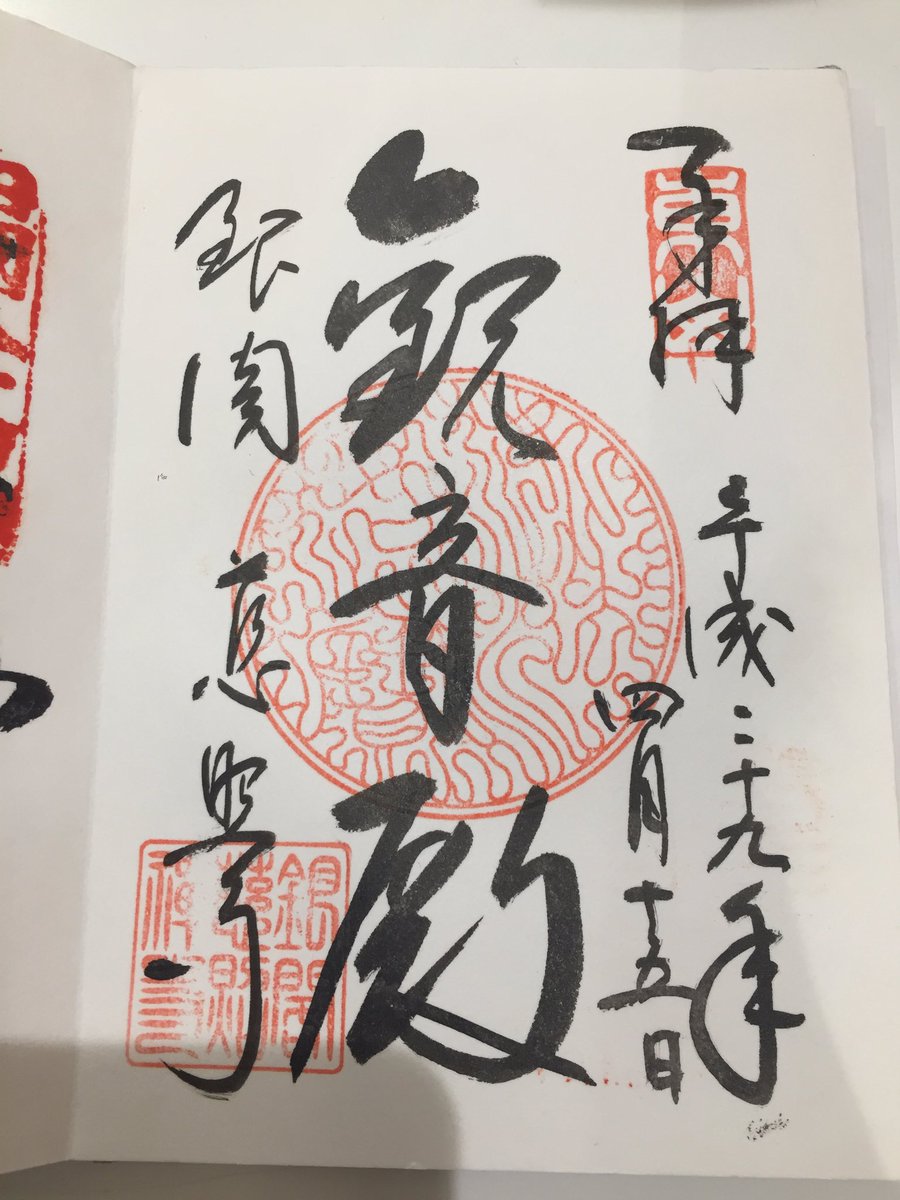 奉拝
平成二十九年
四月十五日
観音殿
銀閣 慈照寺
銀閣
慈照
禅寺